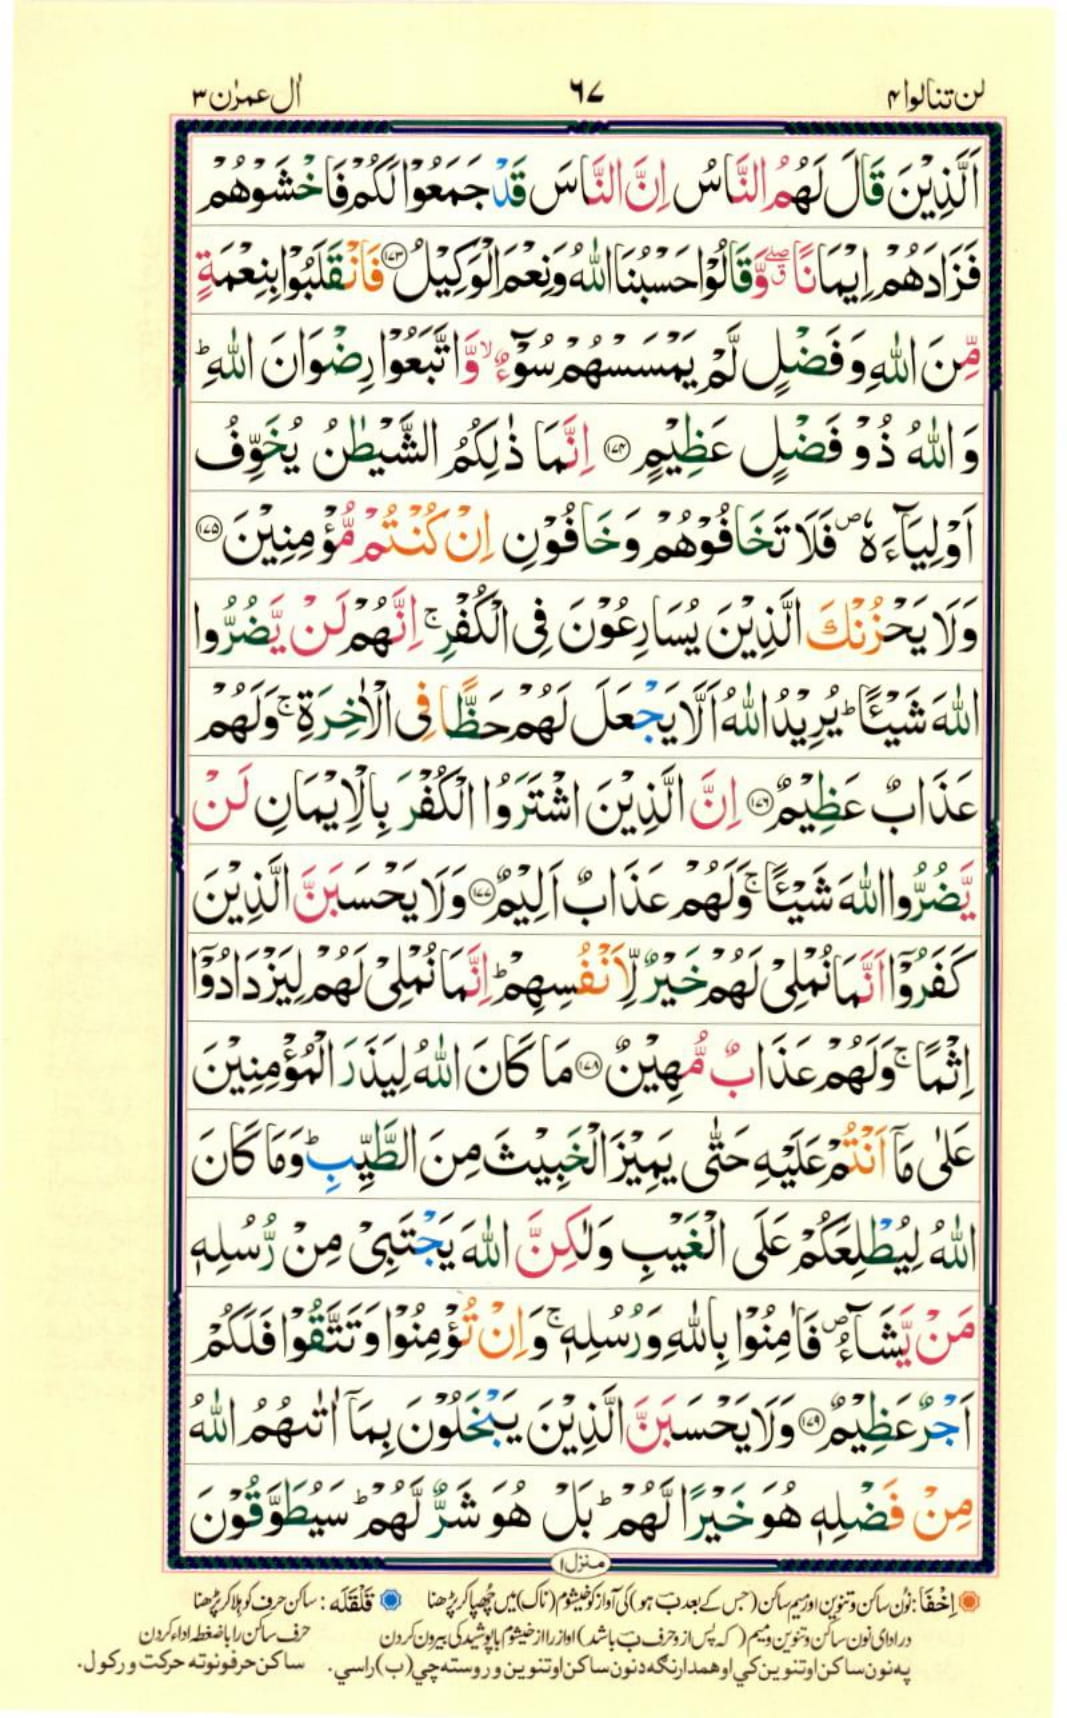 لن تنالوا ۴
۶۷
اٰل عمرٰن ۳
اَلَّذِيْنَ قَالَ لَهُمُ النَّاسُ اِنَّ النَّاسَ قَدْ جَمَعُوْا لَكُمْ فَاخْشَوْهُمْ
فَزَادَهُمْ اِيْمَانًا ۖۗ وَّقَالُوْا حَسْبُنَا اللّٰهُ وَنِعْمَ الْوَكِيْلُ ﴿۱۷۳﴾ فَانْقَلَبُوْا بِنِعْمَةٍ
مِّنَ اللّٰهِ وَفَضْلٍ لَّمْ يَمْسَسْهُمْ سُوْٓءٌ ۙ وَّاتَّبَعُوْا رِضْوَانَ اللّٰهِ ؕ
وَاللّٰهُ ذُوْ فَضْلٍ عَظِيْمٍ ﴿۱۷۴﴾ اِنَّمَا ذٰلِكُمُ الشَّيْطٰنُ يُخَوِّفُ
اَوْلِيَآءَهٗ ۪ فَلَا تَخَافُوْهُمْ وَخَافُوْنِ اِنْ كُنْتُمْ مُّؤْمِنِيْنَ ﴿۱۷۵﴾
وَلَا يَحْزُنْكَ الَّذِيْنَ يُسَارِعُوْنَ فِى الْكُفْرِ ۚ اِنَّهُمْ لَنْ يَّضُرُّوا
اللّٰهَ شَيْـًٔا ؕ يُرِيْدُ اللّٰهُ اَلَّا يَجْعَلَ لَهُمْ حَظًّا فِى الْاٰخِرَةِ ۚ وَلَهُمْ
عَذَابٌ عَظِيْمٌ ﴿۱۷۶﴾ اِنَّ الَّذِيْنَ اشْتَرَوُا الْكُفْرَ بِالْاِيْمَانِ لَنْ
يَّضُرُّوا اللّٰهَ شَيْـًٔا ۚ وَلَهُمْ عَذَابٌ اَلِيْمٌ ﴿۱۷۷﴾ وَلَا يَحْسَبَنَّ الَّذِيْنَ
كَفَرُوْٓا اَنَّمَا نُمْلِىْ لَهُمْ خَيْرٌ لِّاَنْفُسِهِمْ ؕ اِنَّمَا نُمْلِىْ لَهُمْ لِيَزْدَادُوْٓا
اِثْمًا ۚ وَلَهُمْ عَذَابٌ مُّهِيْنٌ ﴿۱۷۸﴾ مَا كَانَ اللّٰهُ لِيَذَرَ الْمُؤْمِنِيْنَ
عَلٰى مَآ اَنْتُمْ عَلَيْهِ حَتّٰى يَمِيْزَ الْخَبِيْثَ مِنَ الطَّيِّبِ ؕ وَمَا كَانَ
اللّٰهُ لِيُطْلِعَكُمْ عَلَى الْغَيْبِ وَلٰكِنَّ اللّٰهَ يَجْتَبِىْ مِنْ رُّسُلِهٖ
مَنْ يَّشَآءُ ۪ فَاٰمِنُوْا بِاللّٰهِ وَرُسُلِهٖ ۚ وَاِنْ تُؤْمِنُوْا وَتَتَّقُوْا فَلَكُمْ
اَجْرٌ عَظِيْمٌ ﴿۱۷۹﴾ وَلَا يَحْسَبَنَّ الَّذِيْنَ يَبْخَلُوْنَ بِمَآ اٰتٰىهُمُ اللّٰهُ
مِنْ فَضْلِهٖ هُوَ خَيْرًا لَّهُمْ ؕ بَلْ هُوَ شَرٌّ لَّهُمْ ؕ سَيُطَوَّقُوْنَ
منزل ۱
اِخْفَا : نُون ساکن و تنوین اور میم ساکن (جس کے بعد ب ہو) کی آواز کو خیشوم (ناک) میں چُھپا کر پڑھنا قَلْقَلَه : ساکن حرف کو ہلا کر پڑھنا
در ادای نون ساکن و تنوین و میم (که پس از و حرف ب باشد) اواز را از خیشوم با پوشیدگی بیرون کردن حرف ساکن را باضغطه اداء کردن
په نون ساکن او تنوین کي او همدارنګه د نون ساکن او تنوین وروسته چي (ب) راسي. ساکن حرفونو ته حرکت ورکول.